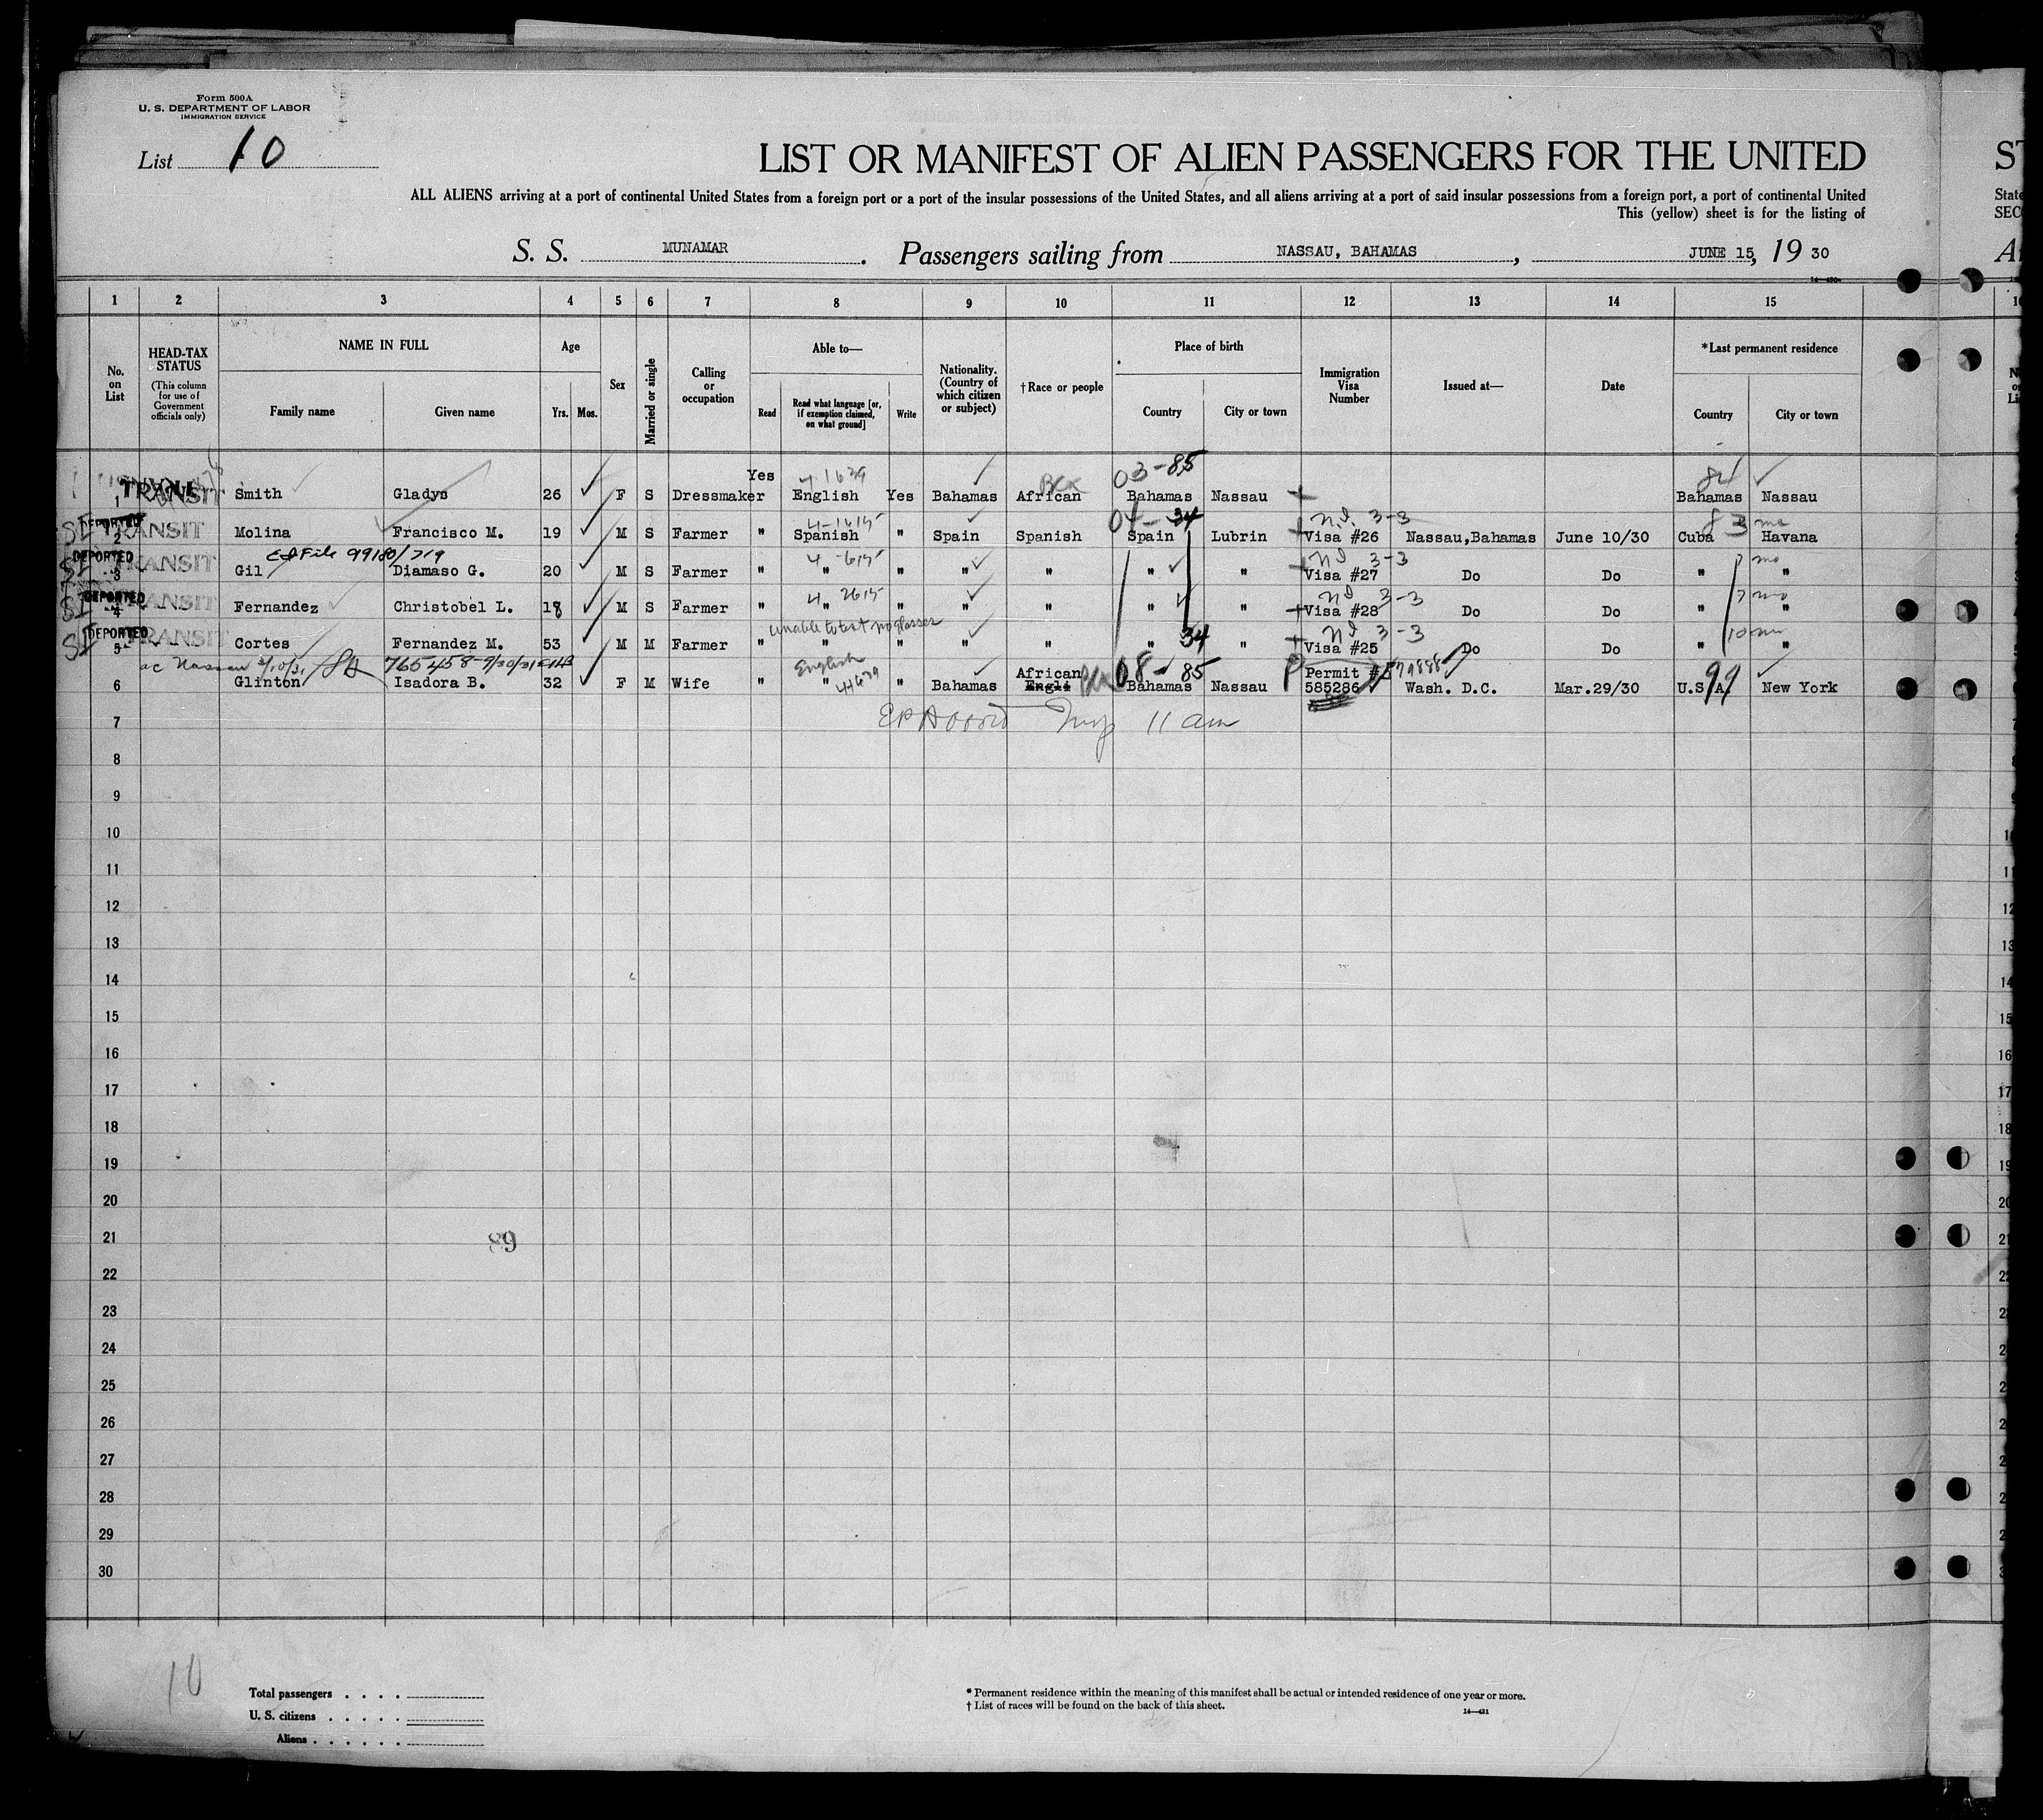 Form 500A
U. S. DEPARTMENT OF LABOR
IMMIGRATION SERVICE
List 10
LIST OR MANIFEST OF ALIEN PASSENGERS FOR THE UNITED
ST
ALL ALIENS arriving at a port of continental United States from a foreign port or a port of the insular possessions of the United States, and all aliens arriving at a port of said insular possessions from a foreign port, a port of continental United
State
This (yellow) sheet is for the listing of
SEC
S. S. MUNAMAR. Passengers sailing from NASSAU, BAHAMAS, JUNE 15, 19 30
1 2 3 4 5 6 7 8 9 10 11 12 13 14 15
No. on List
HEAD-TAX STATUS (This column for use of Government officials only)
NAME IN FULL
Family name Given name
Age
Yrs. Mos.
Sex
Married or single
Calling or occupation
Able to—
Read Read what language [or, if exemption claimed, on what ground] Write
Nationality. (Country of which citizen or subject)
†Race or people
Place of birth
Country City or town
Immigration Visa Number
Issued at—
Date
*Last permanent residence
Country City or town
03-85
1 TRANSIT Smith Gladys 26 F S Dressmaker Yes English Yes Bahamas African Bahamas Nassau Bahamas Nassau
04-34
SI DEPORTED 2 TRANSIT Molina Francisco M. 19 M S Farmer " Spanish " Spain Spanish Spain Lubrin Visa #26 Nassau,Bahamas June 10/30 Cuba Havana
3-3
SI DEPORTED 3 TRANSIT Gil Diamaso G. 20 M S Farmer " " " " " " " Visa #27 Do Do " "
3-3
SI DEPORTED 4 TRANSIT Fernandez Christobel L. 18 M S Farmer " " " " " " " Visa #28 Do Do " "
3-3
unable to test no glasses
34
SI DEPORTED 5 TRANSIT Cortes Fernandez M. 53 M M Farmer " " " " " " " Visa #25 Do Do " "
3-3
10 mo
English
08-85
99
6 Glinton Isadora B. 32 F M Wife " " " Bahamas African Bahamas Nassau Permit # 585286 Wash. D.C. Mar.29/30 U.S.A. New York
11 am
7
8
9
10
11
12
13
14
15
16
17
18
19
20
21
89
22
23
24
25
26
27
28
29
30
10
Total passengers
U. S. citizens
Aliens
* Permanent residence within the meaning of this manifest shall be actual or intended residence of one year or more.
† List of races will be found on the back of this sheet.
14—431